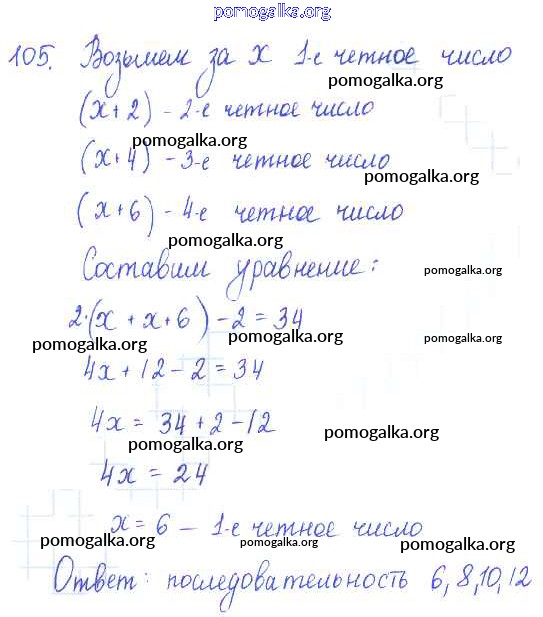 pomogalka.org
105. Возьмем за x 1-е четное число
pomogalka.org
(x+2) - 2-е четное число
pomogalka.org
(x+4) - 3-е четное число
pomogalka.org
(x+6) - 4-е четное число
pomogalka.org
Составим уравнение:
pomogalka.org
2·(x + x + 6) - 2 = 34
pomogalka.org pomogalka.org pomogalka.org
4x + 12 - 2 = 34
4x = 34 + 2 - 12
pomogalka.org pomogalka.org
4x = 24
x = 6 — 1-е четное число
pomogalka.org pomogalka.org pomogalka.org
Ответ: последовательность 6, 8, 10, 12